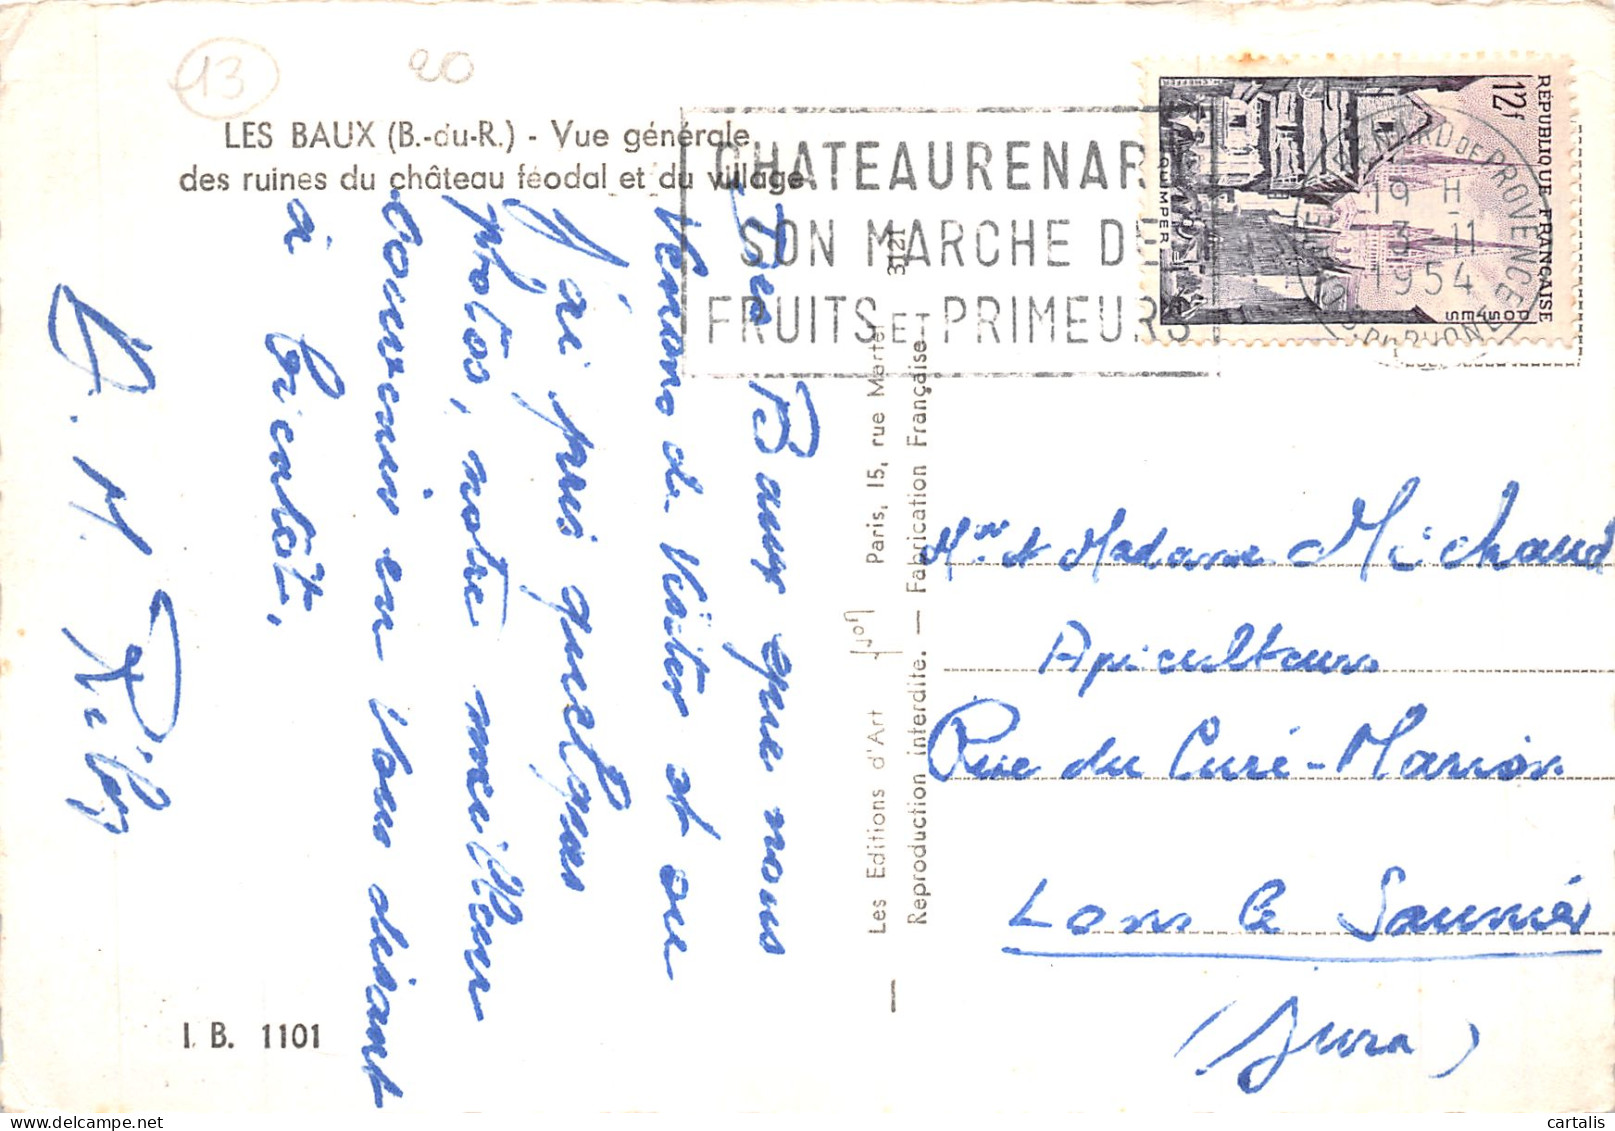 13
20
LES BAUX (B.-du-R.) - Vue générale
des ruines du château féodal et du village
CHATEAURENARD
SON MARCHE DE
FRUITS ET PRIMEURS
REPUBLIQUE FRANÇAISE
12f
POSTES
QUIMPER
CHATEAURENARD DE PROVENCE
19 H
3-11
1954
BCHES DU RHONE
Des Baux que nous
venons de visiter et ou
j'ai pris quelques
photos, notre meilleur
souvenir en vous disant
à bientôt.
Les Editions d'Art Yvon Paris, 15, rue Martel 3121
Reproduction interdite. — Fabrication Française
Mr et Madame Michaud
Apiculteurs
Rue du Curé-Marion
Lons le Saunier
(Jura)
I. B. 1101
cartalis